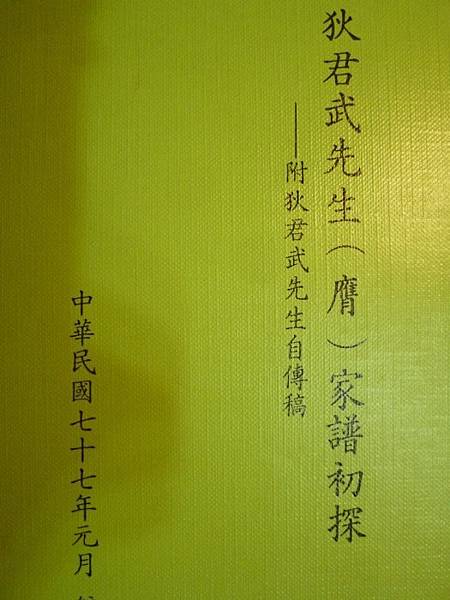 狄君武先生（膺）家譜初探
──附狄君武先生自傳稿
中華民國七十七年元月